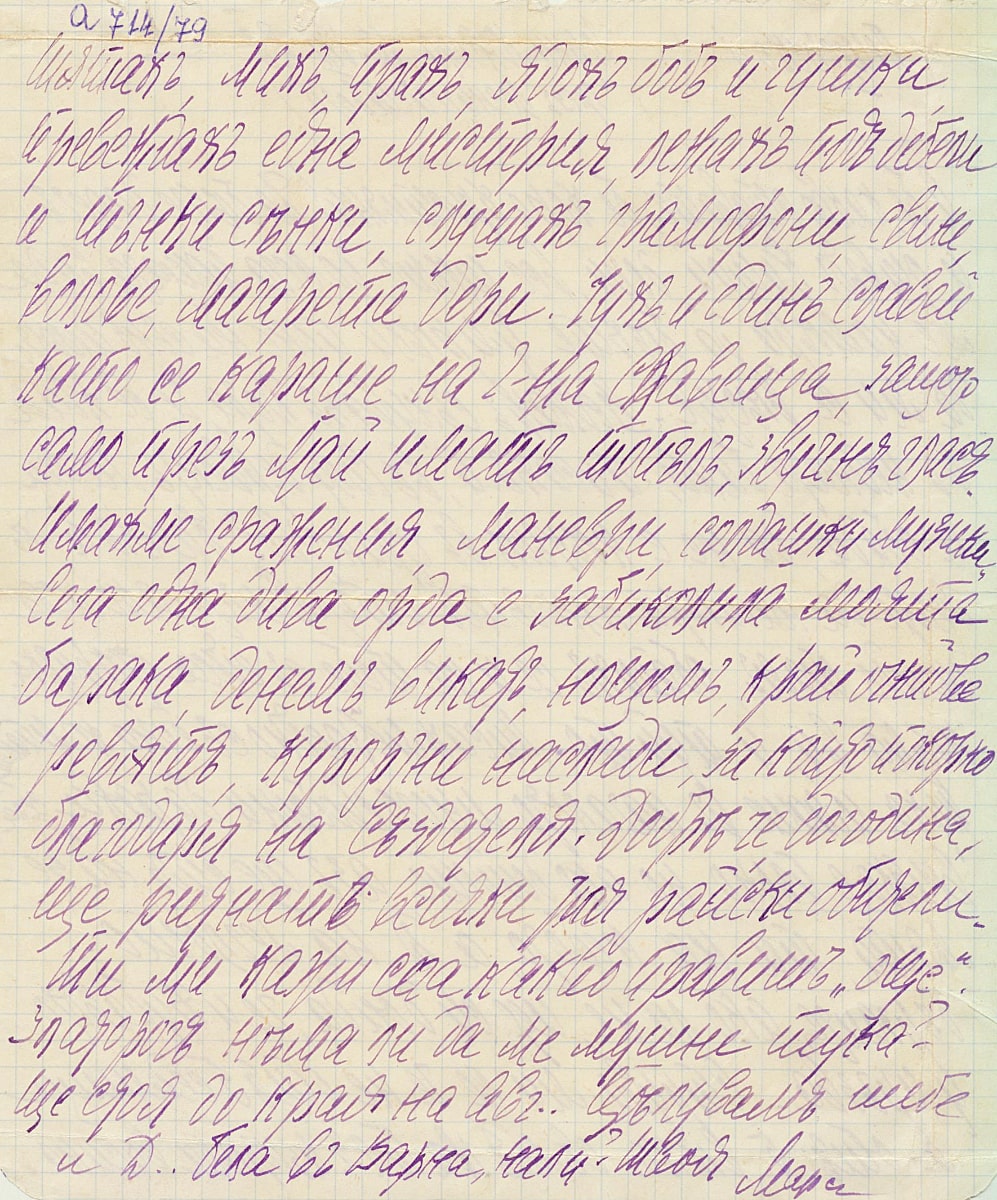 а 714/79
Шетахъ, михъ, прахъ, ядохъ бобъ и гушки,
превеждахъ една мистерия, лежахъ подъ дебели
и тънки сѣнки, слушахъ грамофони, свине,
волове, магарета дори. Чухъ и единъ славей
като се караше на г-жа Славеица, защото
само презъ май иматъ топълъ, звученъ гласъ.
Имахме сражения, маневри, солдашки музики,
Сега една дива орда е заобиколила моята
барака, денемъ викатъ, нощемъ, край огньове
реватъ, курортни наслади, за който покорно
благодаря на Създателя. Добрѣ, че догодина,
ще ритнатъ всички тия райски обители.
Ти ми кажи сега какво правишъ „още“.
Златорогъ нѣма ли да ме мушне тука?
Ще стоя до края на Авг.. Цѣлувамъ тебе
и Д.. бела въ Варна, нали? Твоя Мара